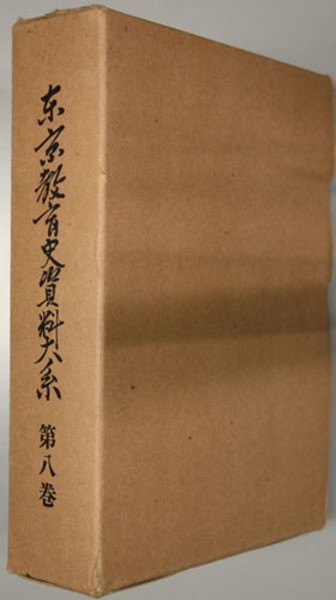 东京教育史資料大系
第八巻